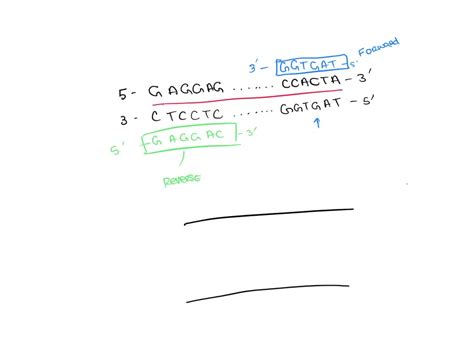 Forward
3' - GGTGAT - 5'
5 - GAGGAG ....... CCACTA - 3'
3 - CTCCTC ....... GGTGAT - 5'
5' - GAGGAC - 3'
Reverse